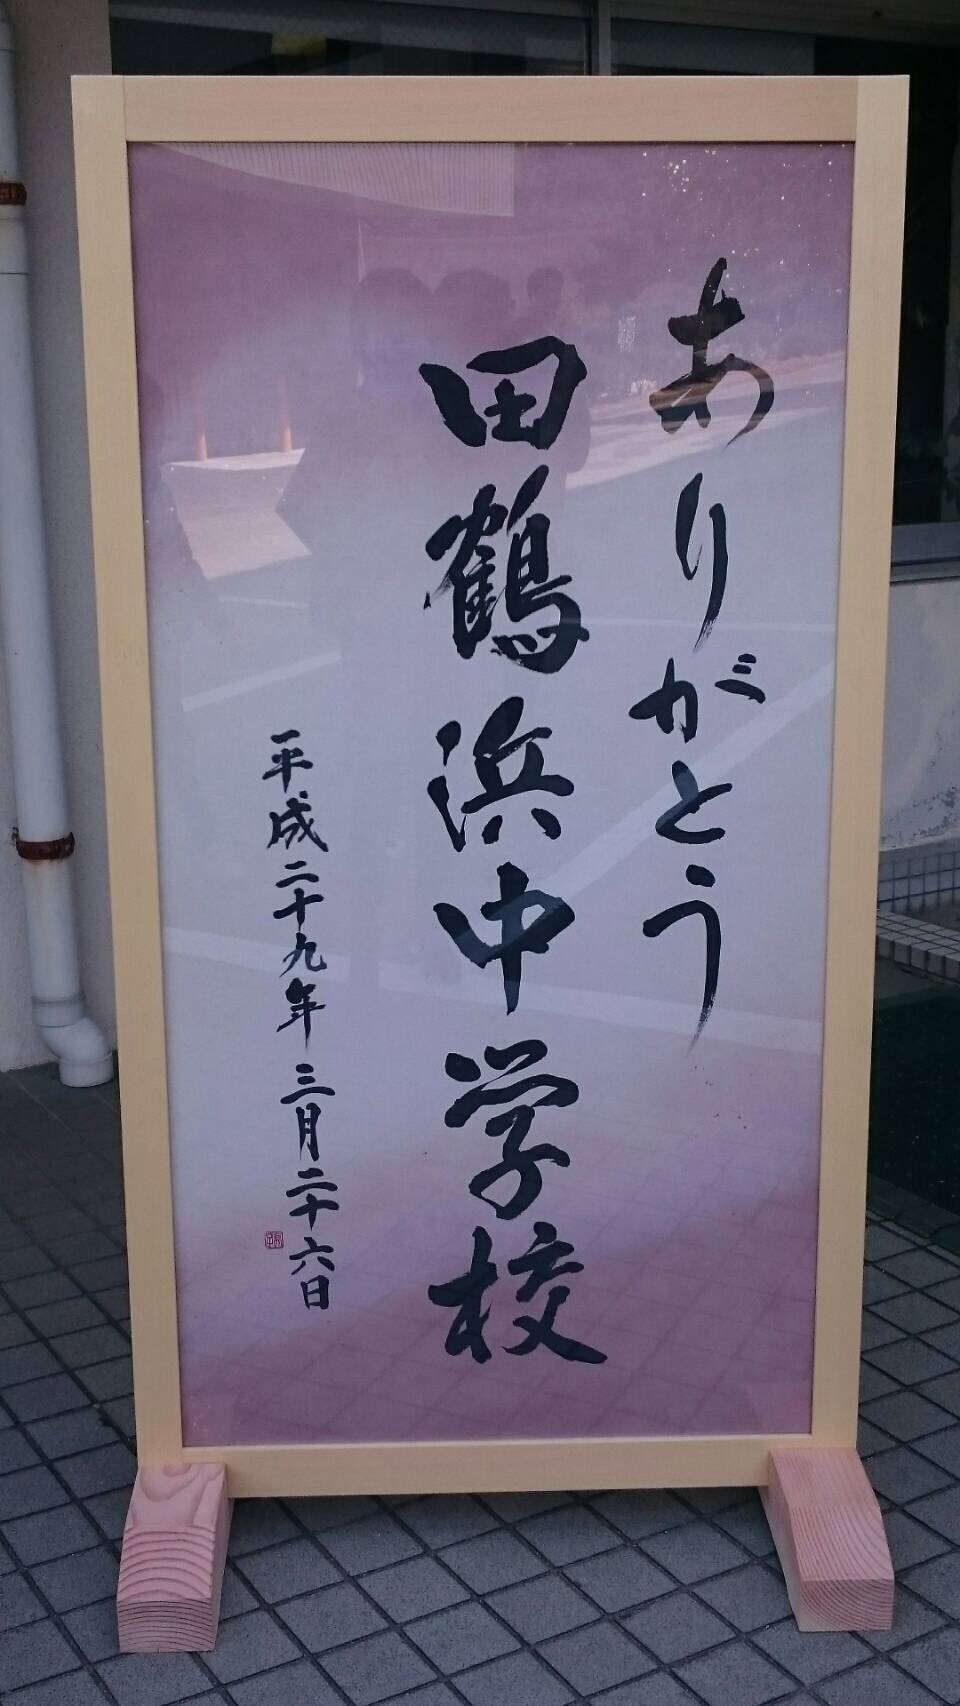 ありがとう
田鶴浜中学校
平成二十九年三月二十六日